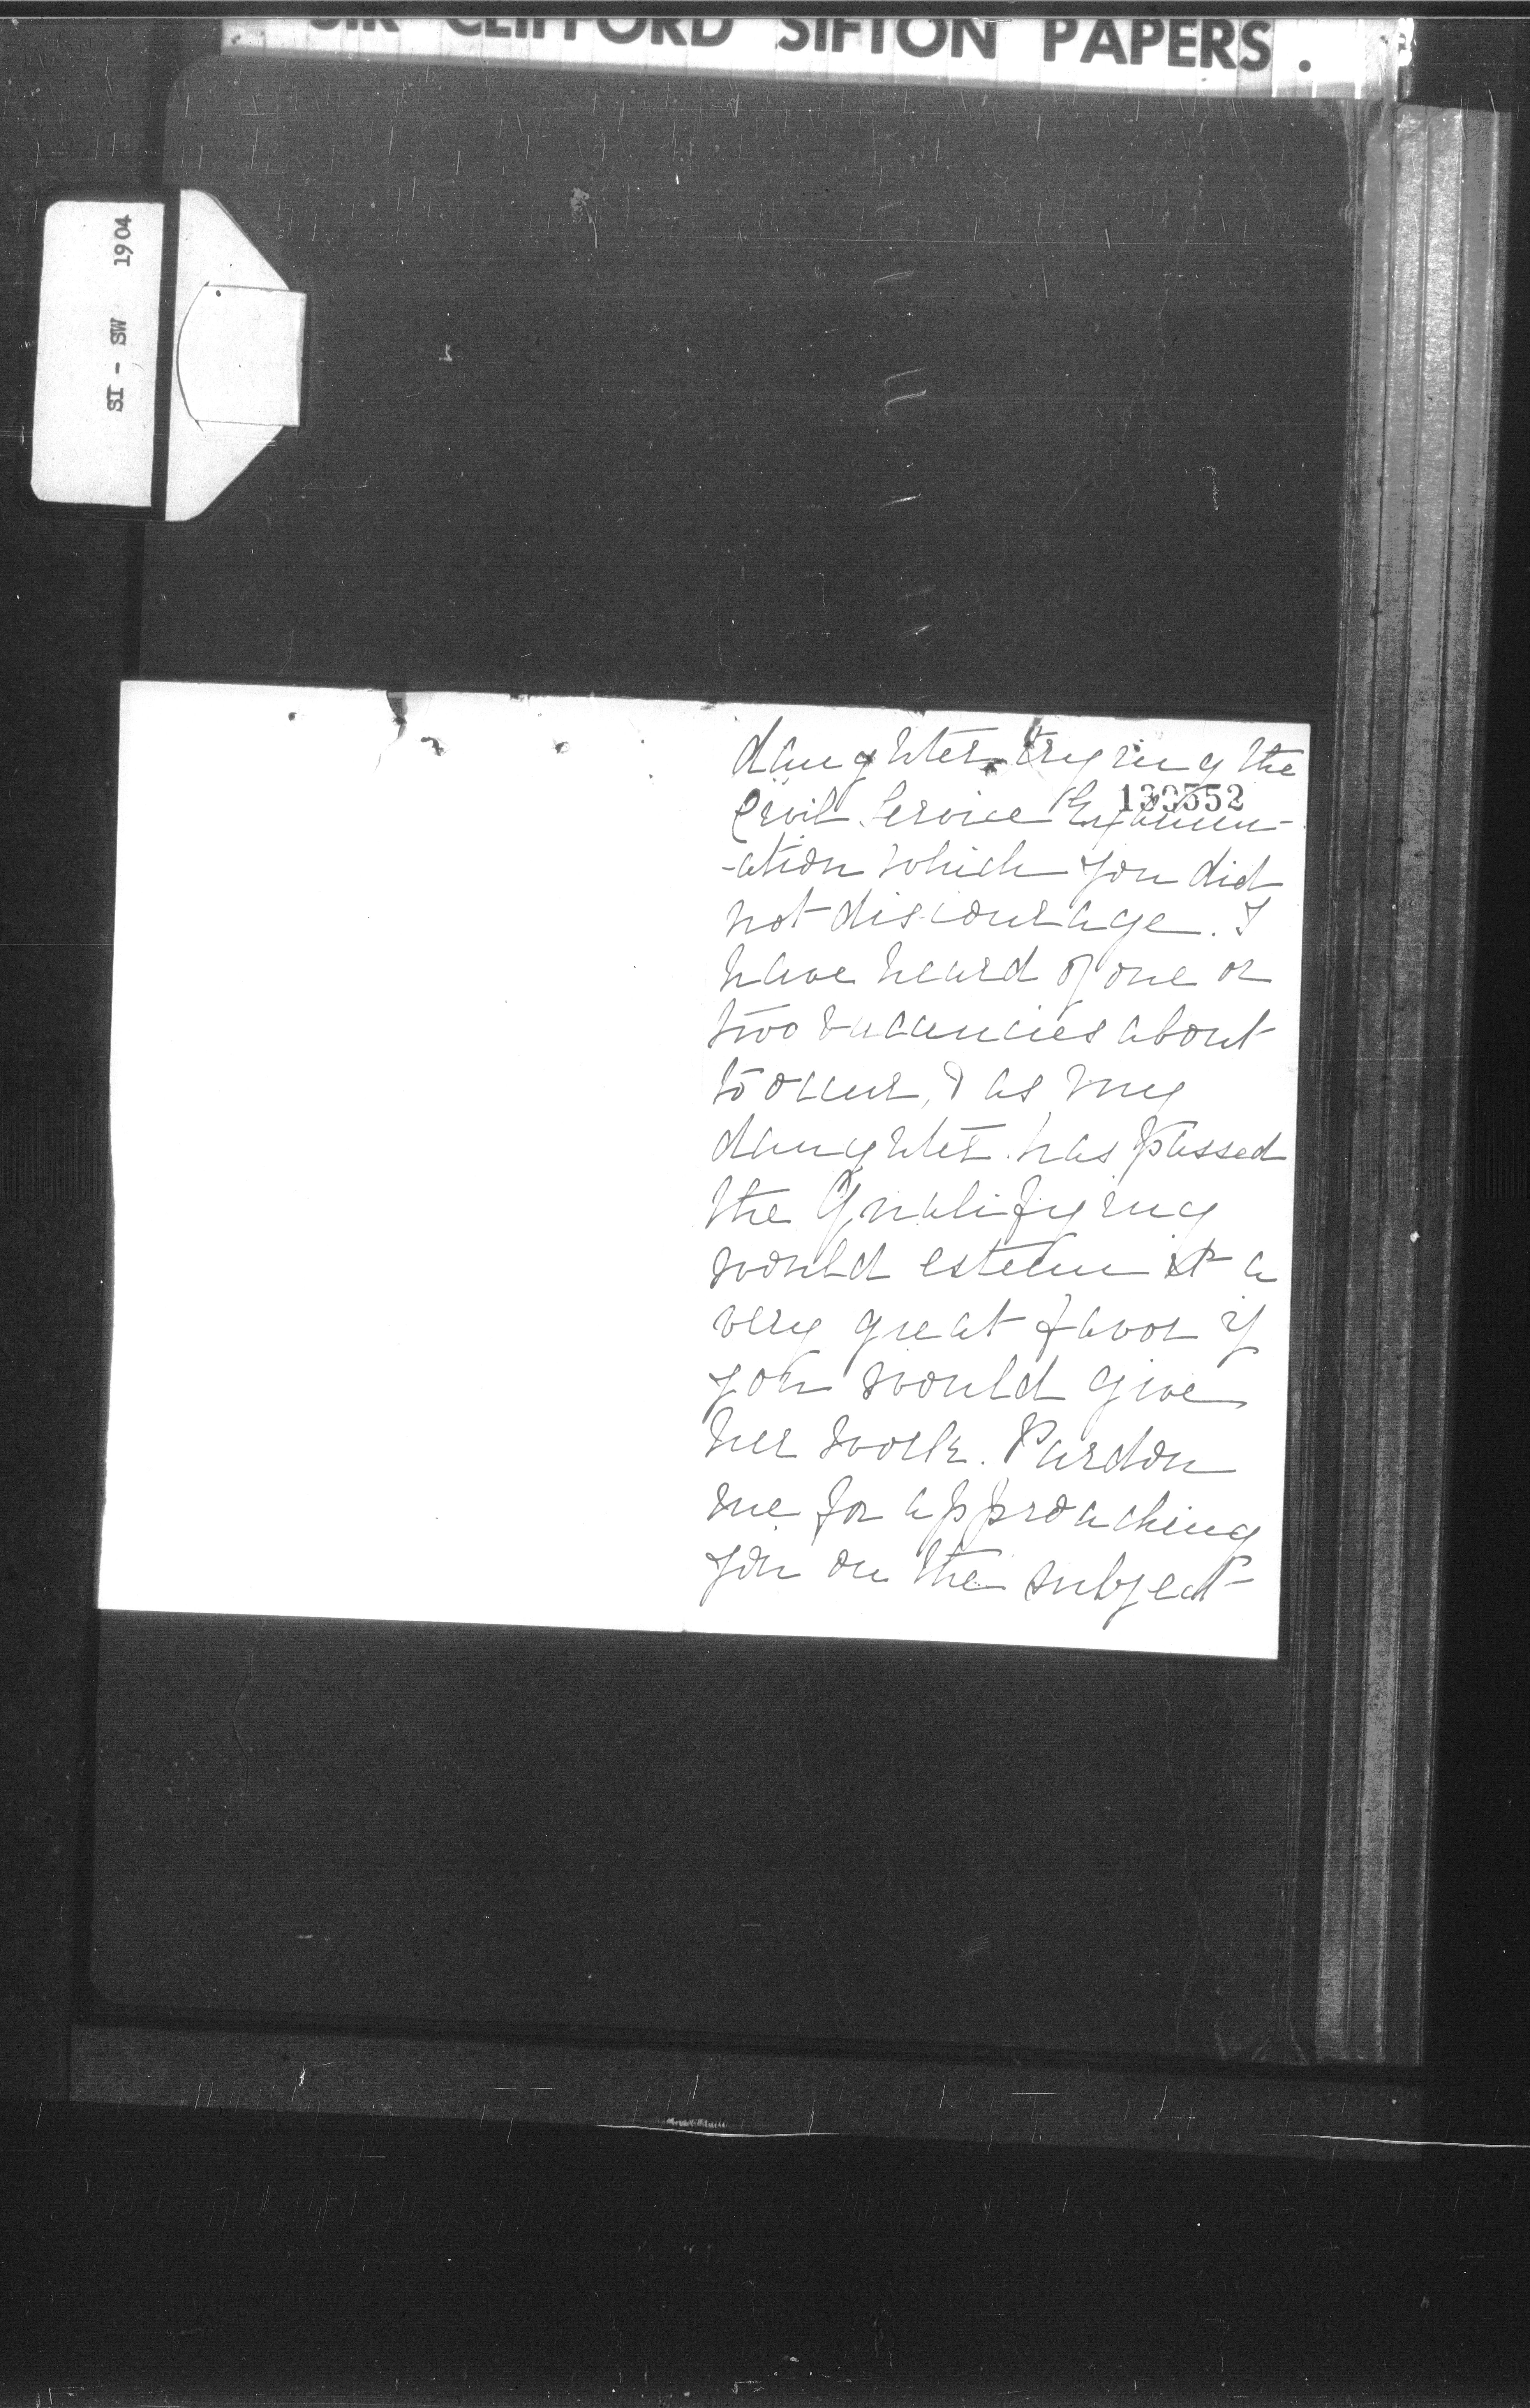 SIR CLIFFORD SIFTON PAPERS.
SI - SW 1904
daughter trying the
130552
Civil Service Examin-
-ation which you did
not discourage. I
have heard of one or
two vacancies about
to occur, & as my
daughter has passed
the Qualifying
would esteem it a
very great favor if
you would give
her work. Pardon
me for approaching
you on the subject